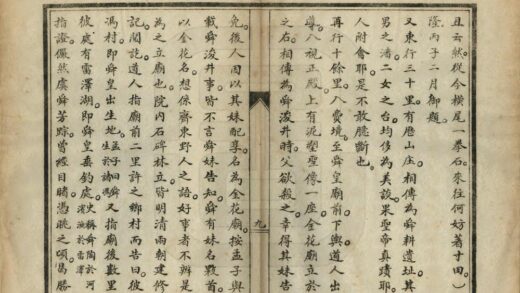 丑云然從今橫尾一拳石來往何妨著寸田
隆丙子二月御題
又東行三十里有歷山庄相傳為舜耕遺址其
男之潘二女之台均侈為美談果聖帝真蹟耶
人附會耶是不敢臆斷也
再行十餘里入費境至舜皇廟前下輿道人出
導入視正殿上有泥塑聖像一座金花廟立於
之右相傳為舜浚井時父欲殺之幸得其妹告
九
免後人因以其妹配享名為金花廟按孟子與
載舜浚井事皆不言舜妹告知舜有妹名敤首
以金花名想係齊東野人之語好事者不辨是
為之立廟也院內石碑林立皆明清兩朝建修
記閱訖道人指廟前二里許之鄉村而告曰彼
馮村即舜皇出生地孟子舜生於諸馮又指廟後數里
彼處有雷澤湖即舜皇垂釣處史稱舜陶於河漁於雷澤
指證儼然虞舜芳踪曾經目睹憑眺之頃曷勝